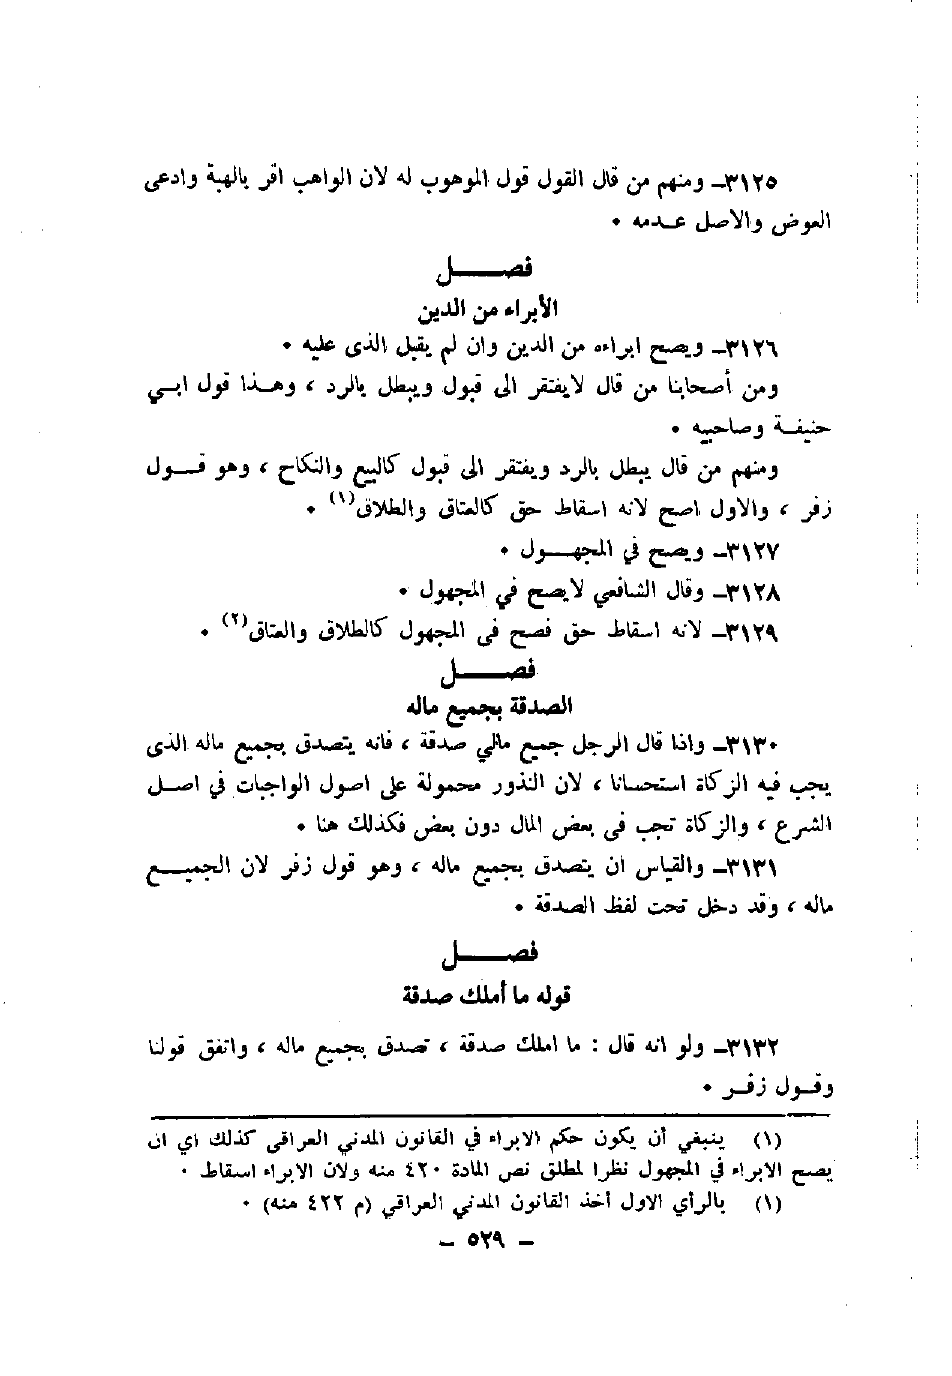 ٣١٢٥ــ ومنهم من قال القول قول الموهوب له لان الواهب اقر بالهبة وادعى
العوض والاصل عـدمه ٠
فصـــــل
الأبراء من الدين
٣١٢٦ــ ويصح ابراءه من الدين وان لم يقبل الذى عليه ٠
ومن أصحابنا من قال لايفتقر الى قبول ويبطل بالرد ، وهـذا قول ابـي
حنيفـة وصاحبيه ٠
ومنهم من قال يبطل بالرد ويفتقر الى قبول كالبيع والنكاح ، وهو قـول
زفر ، والاول اصح لانه اسقاط حق كالعتاق والطلاق(١) ٠
٣١٢٧ــ ويصح في المجهـول ٠
٣١٢٨ــ وقال الشافعي لايصح في المجهول ٠
٣١٢٩ــ لانه اسقاط حق فصح فى المجهول كالطلاق والعتاق(٢) ٠
فصـــــل
الصدقة بجميع ماله
٣١٣٠ــ واذا قال الرجل جميع مالي صدقة ، فانه يتصدق بجميع ماله الذى
يجب فيه الزكاة استحسانا ، لان النذور محمولة على اصول الواجبات في اصـل
الشرع ، والزكاة تجب فى بعض المال دون بعض فكذلك هنا ٠
٣١٣١ــ والقياس ان يتصدق بجميع ماله ، وهو قول زفر لان الجميـع
ماله ، وقد دخل تحت لفظ الصدقة ٠
فصـــــل
قوله ما أملك صدقة
٣١٣٢ــ ولو انه قال : ما املك صدقة ، تصدق بجميع ماله ، واتفق قولنا
وقـول زفـر ٠
(١) ينبغي أن يكون حكم الابراء في القانون المدني العراقي كذلك اي ان
يصح الابراء في المجهول نظرا لمطلق نص المادة ٤٢٠ منه ولان الابراء اسقاط ٠
(١) بالرأي الاول أخذ القانون المدني العراقي (م ٤٢٢ منه) ٠
ــ ٥٢٩ ــ